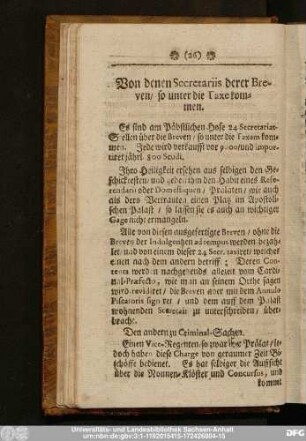 (26)
Von denen Secretariis derer Bre-
ven/ so unter die Taxe kom-
men.
Es sind am Päbstlichen Hofe 24 Secretariat-
Stellen über die Breven/ so unter die Taxen kom-
men. Jede wird verkaufft vor 9000/ und impor-
tiret jährl. 800 Scudi.
Ihro Heiligkeit ersehen aus selbigen den Ge-
schicktesten/ und geben ihm den Habit eines Refe-
rendarii oder Domestiquen, Prælaten/ wie auch
als dero Vertraute/ einen Platz im Apostoli-
schen Palast/ so lassen sie es auch an wichtiger
Gage nicht ermangeln.
Alle von diesen ausgefertigte Breven/ ohne die
Breven der Indulgentzen ad tempus werden bezah-
let/ und von einem dieser 24 Secr. taxiret/ welches
einen nach dem andern betrifft; Deren Con-
cepten werden nachgehends allezeit vom Cardi-
nal-Præfecto, wie man an seinem Orthe sagen
wird revidiret/ die Breven aber mit dem Annulo
Piscatoris signiret/ und dem auf dem Palast
wohnenden Secretair zu unterschreiben/ über-
bracht.
Den andern zu Criminal-Sachen.
Einen Vice-Regenten so zwar ein Prälat/ je-
doch haben diese Charge von geraumer Zeit Bi-
schöffe bedienet. Es hat selbiger die Aufsicht
über die Nonnen-Klöster und Concursus, und
kommt
Universitäts- und Landesbibliothek Sachsen-Anhalt
urn:nbn:de:gbv:3:1-1192015415-172426804-15